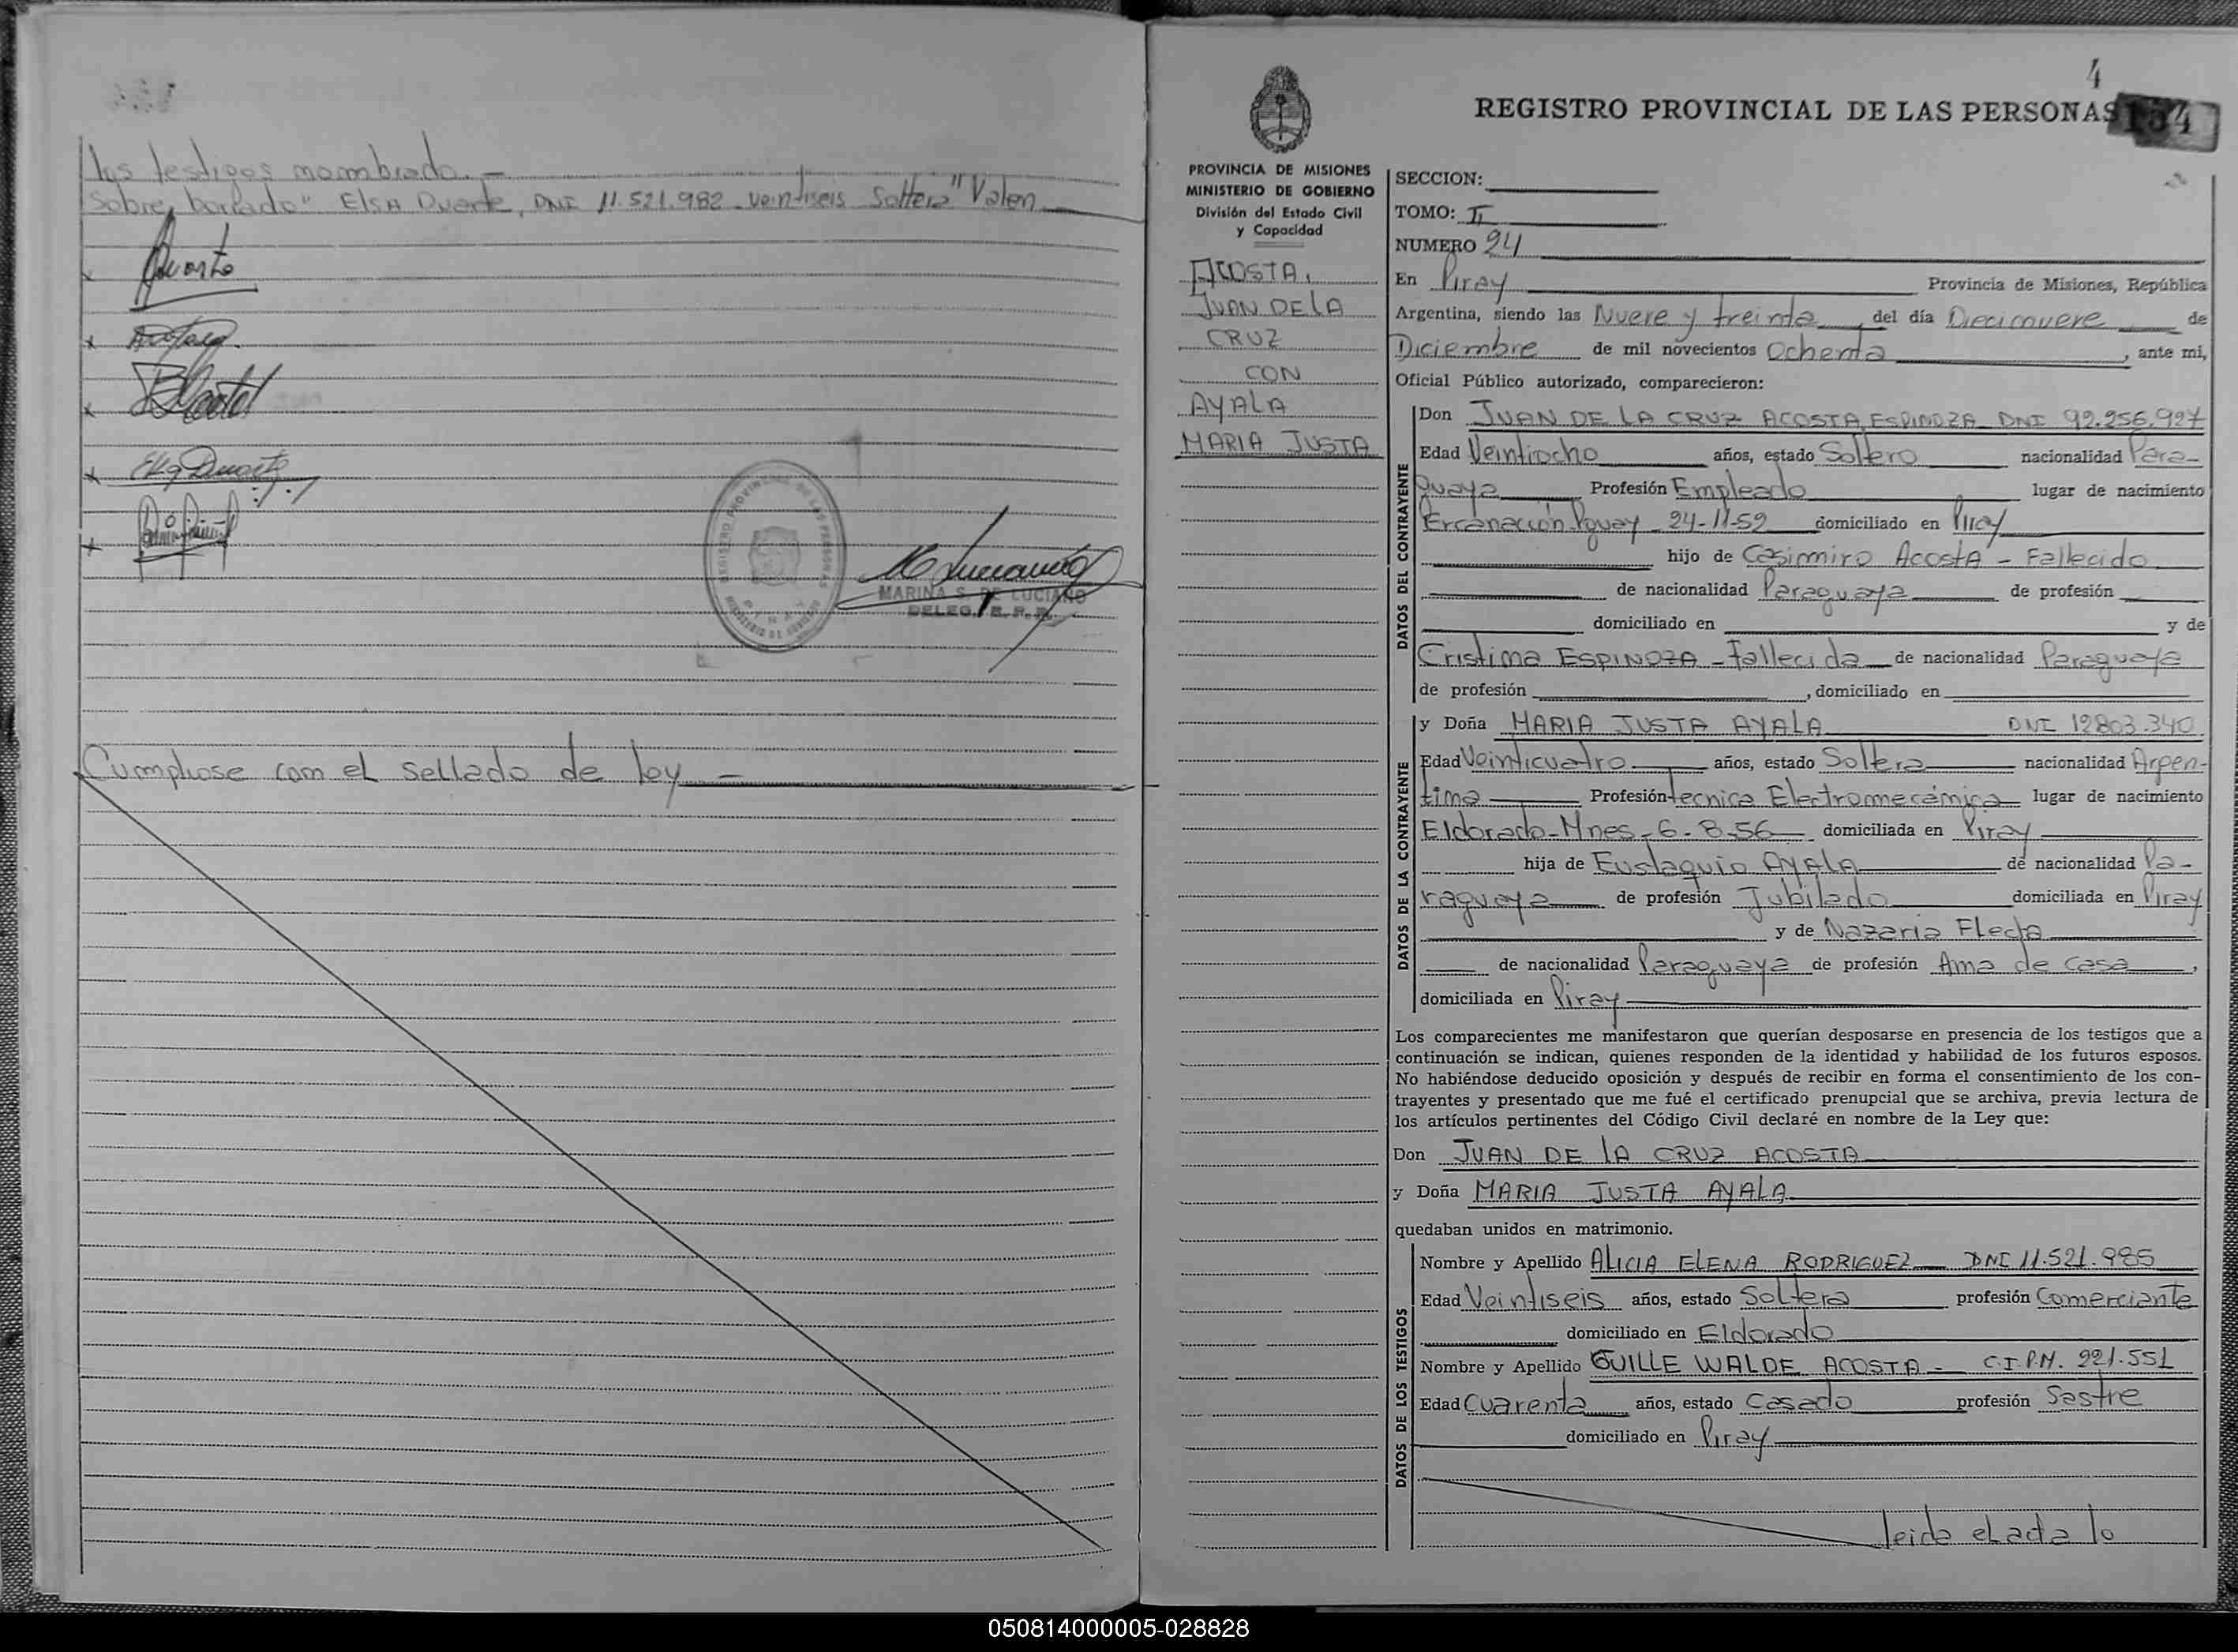 los testigos nombrado.-
Sobre borrado" Elsa Duarte, DNI 11.521.982 - veintiseis Soltera" Valen
Duarte
Elsa Duarte
MARINA S. DE LUCIANO
DELEG. R. P. P.
Cumpliose con el sellado de ley -
4
REGISTRO PROVINCIAL DE LAS PERSONAS
134
PROVINCIA DE MISIONES
MINISTERIO DE GOBIERNO
División del Estado Civil
y Capacidad
ACOSTA,
JUAN DE LA
CRUZ
CON
AYALA
MARIA JUSTA
SECCION:
TOMO: II
NUMERO 24
En Piray Provincia de Misiones, República
Argentina, siendo las Nueve y treinta del día Diecinueve de
Diciembre de mil novecientos Ochenta, ante mi,
Oficial Público autorizado, comparecieron:
DATOS DEL CONTRAYENTE
Don JUAN DE LA CRUZ ACOSTA ESPINOZA DNI 92.256.927
Edad Veintiocho años, estado Soltero nacionalidad Para-
guaya Profesión Empleado lugar de nacimiento
Encarnación Pguay - 24-11-52 domiciliado en Piray
hijo de Casimiro Acosta - Fallecido
de nacionalidad Paraguaya de profesión
domiciliado en y de
Cristina ESPINOZA - Fallecida de nacionalidad Paraguaya
de profesión , domiciliado en
DATOS DE LA CONTRAYENTE
y Doña MARIA JUSTA AYALA DNI 12803.340
Edad Veinticuatro años, estado Soltera nacionalidad Argen-
tina Profesión tecnica Electromecánica lugar de nacimiento
Eldorado-Mnes-6-8-56 domiciliada en Piray
hija de Eustaquio AYALA de nacionalidad Pa-
raguaya de profesión Jubilado domiciliada en Piray
y de Nazaria Fleita
de nacionalidad Paraguaya de profesión Ama de casa ,
domiciliada en Piray
Los comparecientes me manifestaron que querían desposarse en presencia de los testigos que a
continuación se indican, quienes responden de la identidad y habilidad de los futuros esposos.
No habiéndose deducido oposición y después de recibir en forma el consentimiento de los con-
trayentes y presentado que me fué el certificado prenupcial que se archiva, previa lectura de
los artículos pertinentes del Código Civil declaré en nombre de la Ley que:
Don JUAN DE LA CRUZ ACOSTA
y Doña MARIA JUSTA AYALA
quedaban unidos en matrimonio.
DATOS DE LOS TESTIGOS
Nombre y Apellido ALICIA ELENA RODRIGUEZ DNI 11.521.985
Edad Veintiseis años, estado Soltera profesión Comerciante
domiciliado en Eldorado
Nombre y Apellido GUILLE WALDE ACOSTA - C.I.P.M. 221.551
Edad Cuarenta años, estado Casado profesión Sastre
domiciliado en Piray
leida el acta lo
050814000005-028828